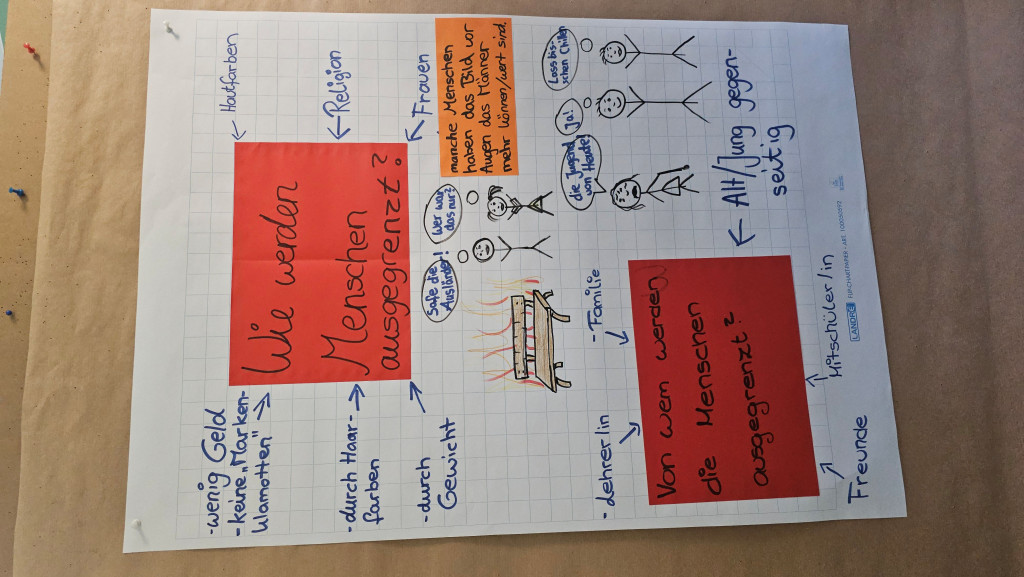 -wenig Geld
-keine „Marken-
klamotten"
-durch Haar-
farben
-durch
Gewicht
Wie werden
Menschen
ausgegrenzt?
Hautfarben
Religion
Frauen
manche Menschen
haben das Bild vor
Augen das Männer
mehr können/wert sind.
safe die
Ausländer!
Wer war
das nur?
die Jugend
von Heute!
Ja!
Lass bis-
schen Chillen
-Lehrer/in
-Familie
Von wem werden
die Menschen
ausgegrenzt?
Alt/Jung gegen-
seitig
Freunde
Mitschüler/in
LANDRÉ FLIPCHARTPAPIER